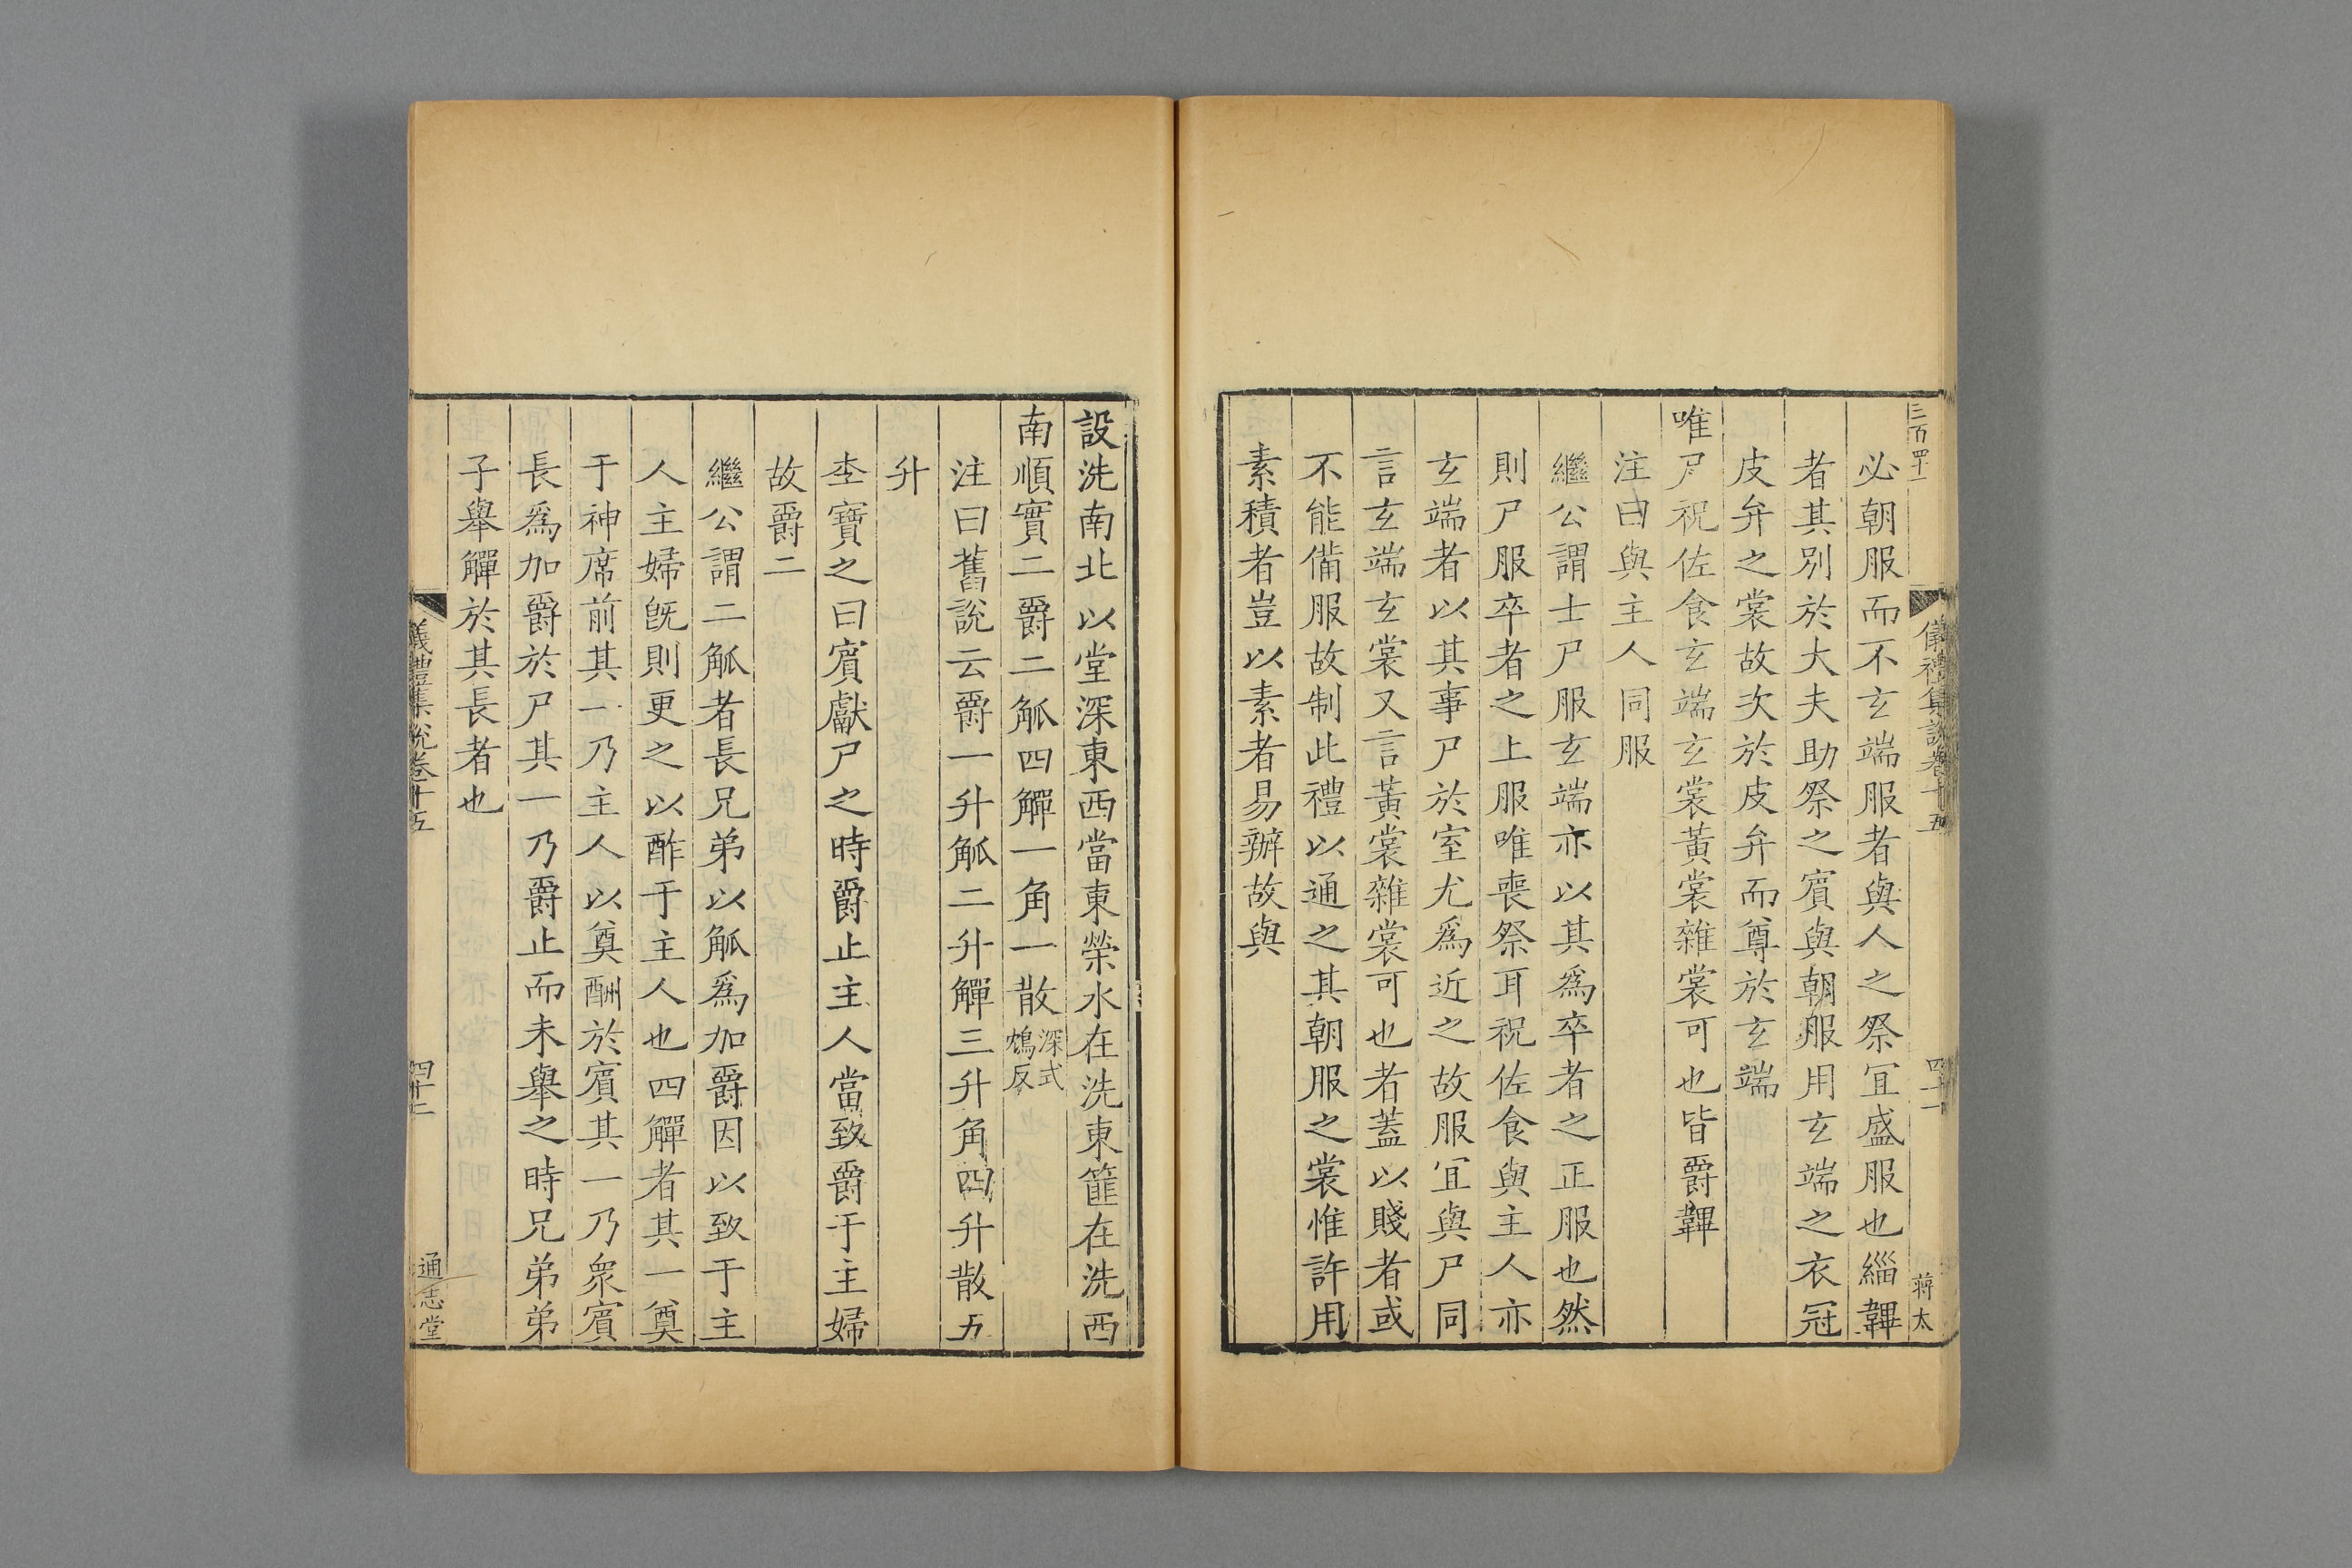 三百四十一
儀禮集說卷十五
四十一
蔣太
必朝服而不玄端服者與人之祭冝盛服也緇韠
者其別於大夫助祭之賔與朝服用玄端之衣冠
皮弁之裳故次於皮弁而尊於玄端
唯尸祝佐食玄端玄裳黃裳雜裳可也皆爵韠
注曰與主人同服
繼公謂士尸服玄端亦以其爲卒者之正服也然
則尸服卒者之上服唯喪祭耳祝佐食與主人亦
玄端者以其事尸於室尤爲近之故服冝與尸同
言玄端玄裳又言黃裳雜裳可也者蓋以賤者或
不能備服故制此禮以通之其朝服之裳惟許用
素積者豈以素者易辦故與
設洗南北以堂深東西當東榮水在洗東篚在洗西
南順實二爵二觚四觶一角一散深式鴆反
注曰舊說云爵一升觚二升觶三升角四升散五
升
李寶之曰賔獻尸之時爵止主人當致爵于主婦
故爵二
繼公謂二觚者長兄弟以觚爲加爵因以致于主
人主婦旣則更之以酢于主人也四觶者其一奠
于神席前其一乃主人以奠酬於賔其一乃衆賔
長爲加爵於尸其一乃爵止而未舉之時兄弟弟
子舉觶於其長者也
儀禮集說卷十五
四十二
通志堂